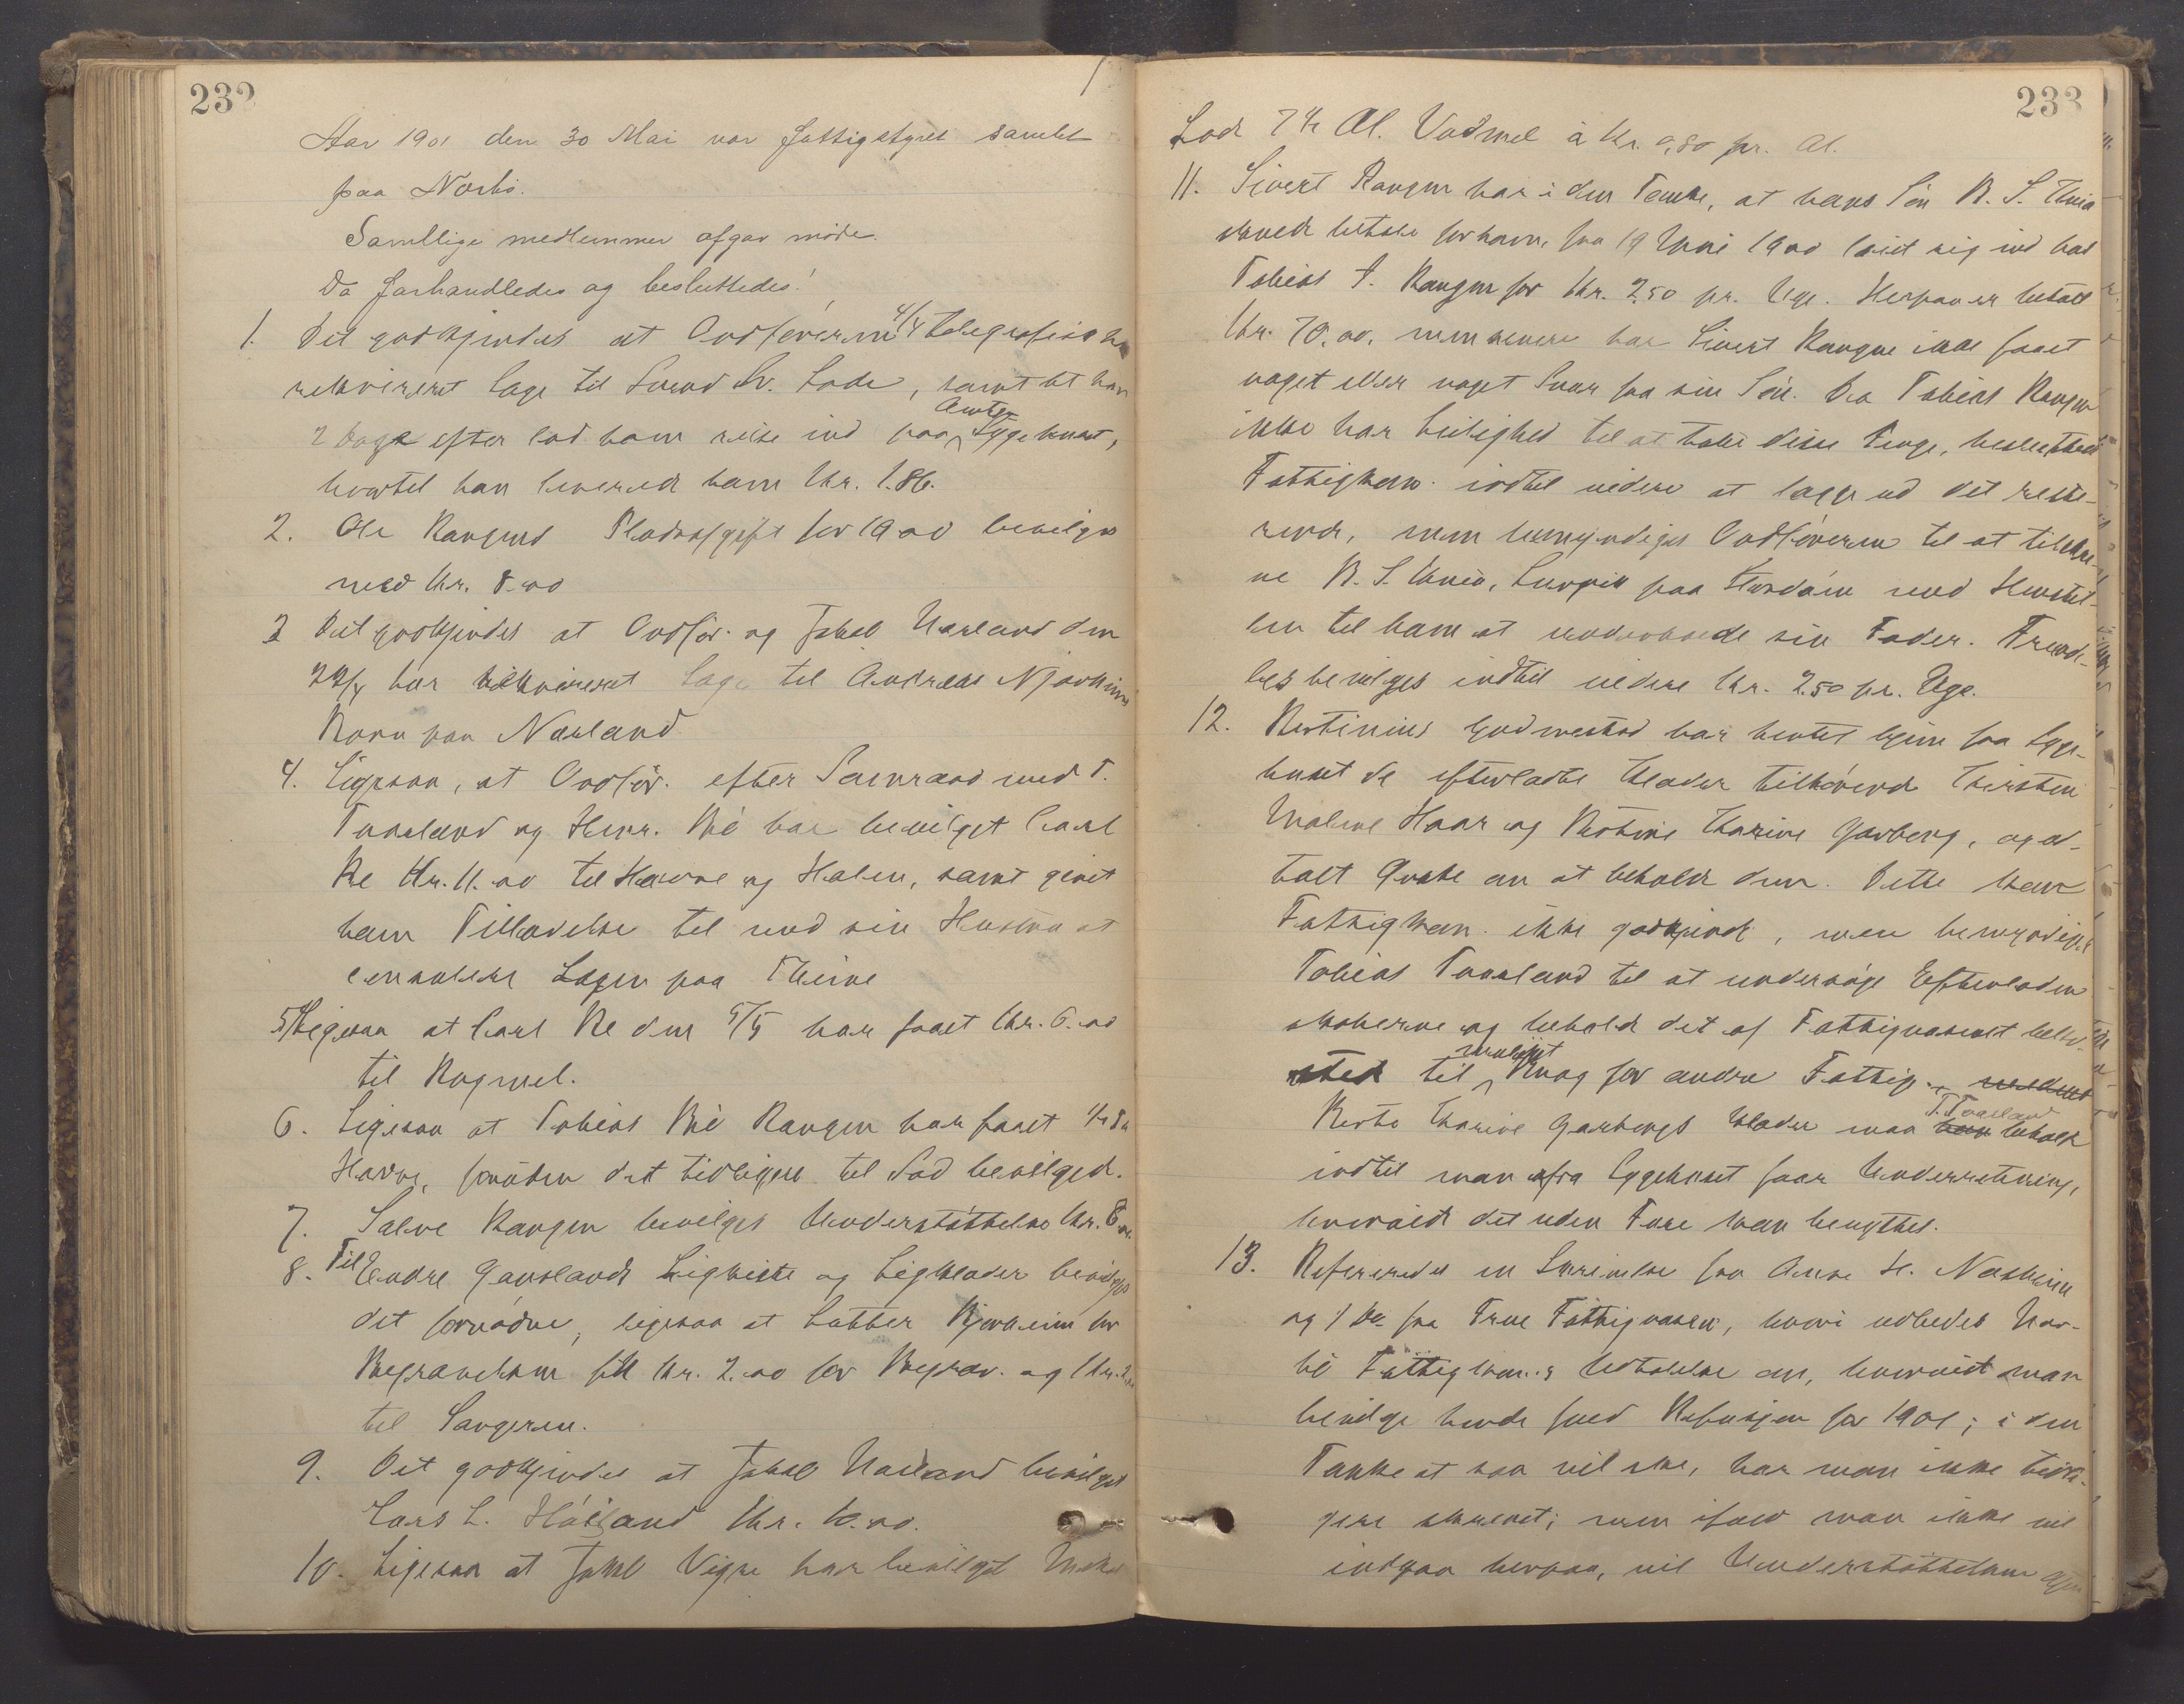 232
Aar 1901 den 30 Mai var Fattigstyret samlet
paa Nærbø.
Samtlige medlemmer afgav møde.
Da Forhandledes og besluttedes:
1. Det godkjendes at Ordføreren 4/4 telegrafisk har
rekvireret Læge til Svend Lode, samt at han
2 Dage efter lod ham reise ind paa Amts Sygehuset,
hvortil han leverede ham Kr. 1.86.
2. Ole Raugens Pladsafgift for 1900 bevilges
med Kr. 8.00
3 Det godkjendes at Ordfør. og Jakob Narland den
29/4 har rekvireret Læge til Andreas Njærheims
Børn paa Narland.
4. Ligesaa, at Ordfør. efter Samraad med T.
Taarland og Henr. Bø har bevilget Carl
Re Kr. 11.00 til Havre og Halm, samt givet
ham Tilladelse til med sin Hustru at
consulere Lægen paa Thime
5. Ligesaa at Carl Re den 5/5 har faaet Kr. 6.00
til Rugmel.
6. Ligesaa at Tobias Bø Raugen har faaet 1/2 Td
Havre, foruden det tidligere til Sæd bevilgede.
7. Salve Raugen bevilges Understøttelse Kr. 8.00.
8. Til Endre Gauslands Ligkiste og Ligklæder bevilges
det fornødne, ligesaa at Lobber Bjorheim for
Begravelsen fik Kr. 2.00 for Begrav. og Kr.
til Sangeren.
9. Det godkjendes at Jakob Narland bevilget
Lars L. Høiland Kr. 10.00.
10. Ligesaa at Jakob Vigre har bevilget
233
Lode 7 1/2 Al. Vadmel à Kr. 0,80 pr. Al.
11. Sivert Raugen har i den Tanke, at hans Søn B. S.
skulde betale for ham, fra 19 Juni 1900 leiet sig ind hos
Tobias T. Raugen for Kr. 2.50 pr. Uge. Herpaa er betalt
Kr. 70.00, men senere har Sivert Raugen ikke faaet
noget eller noget Svar fra sin Søn. Da Tobias Raugen
ikke har Leilighed til at taale disse Penge, besluttede
Fattigkom. indtil videre at lægge ud det reste-
rende, men bemyndiges Ordføreren til at tilskri-
ve B. S. paa med Henstil-
len til ham at underholde sin Fader. Fremde-
les bevilges indtil videre Kr. 2.50 pr. Uge.
12. Bertinius Godmestad har hentet hjem fra Syge-
huset de efterladte Klæder tilhørende Kirsten
Malene Haar og Bertine Karine Garborg, og a-
talt Ønske om at beholde dem. Dette kan
Fattigkom. ikke godkjende, men bemyndiges
Tobias Taarland til at undersøge Efterladen-
skaberne og beholde det af Fattigvæsenet beko-
stede til muligt Brug for andre Fattige.
Berte Karine Garborgs Klæder maa T. Taarland beholde
indtil man fra Sygehuset faar Underretning,
hvorvidt det uden Fare kan benyttes.
13. Refereredes en Skrivelse fra Anne H. Nasheim
og 1 do fra True Fattigvæsen, hvori udbedes Nær-
bø Fattigkom.s Udtalelse om, hvorvidt man
bevilge hende fuld Refusjon for 1901; i den
Tanke at saa vil ske, har man ikke tidli-
gere skrevet; men ifald man ikke vil
indgaa herpaa, vil Understøttelsen